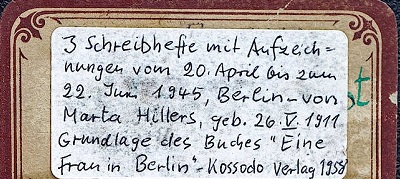 3 Schreibhefte mit Aufzeich=
nungen vom 20. April bis zum
22. Juni 1945, Berlin – von
Marta Hillers, geb. 26. V. 1911
Grundlage des Buches "Eine
Frau in Berlin" – Kossodo Verlag 1958